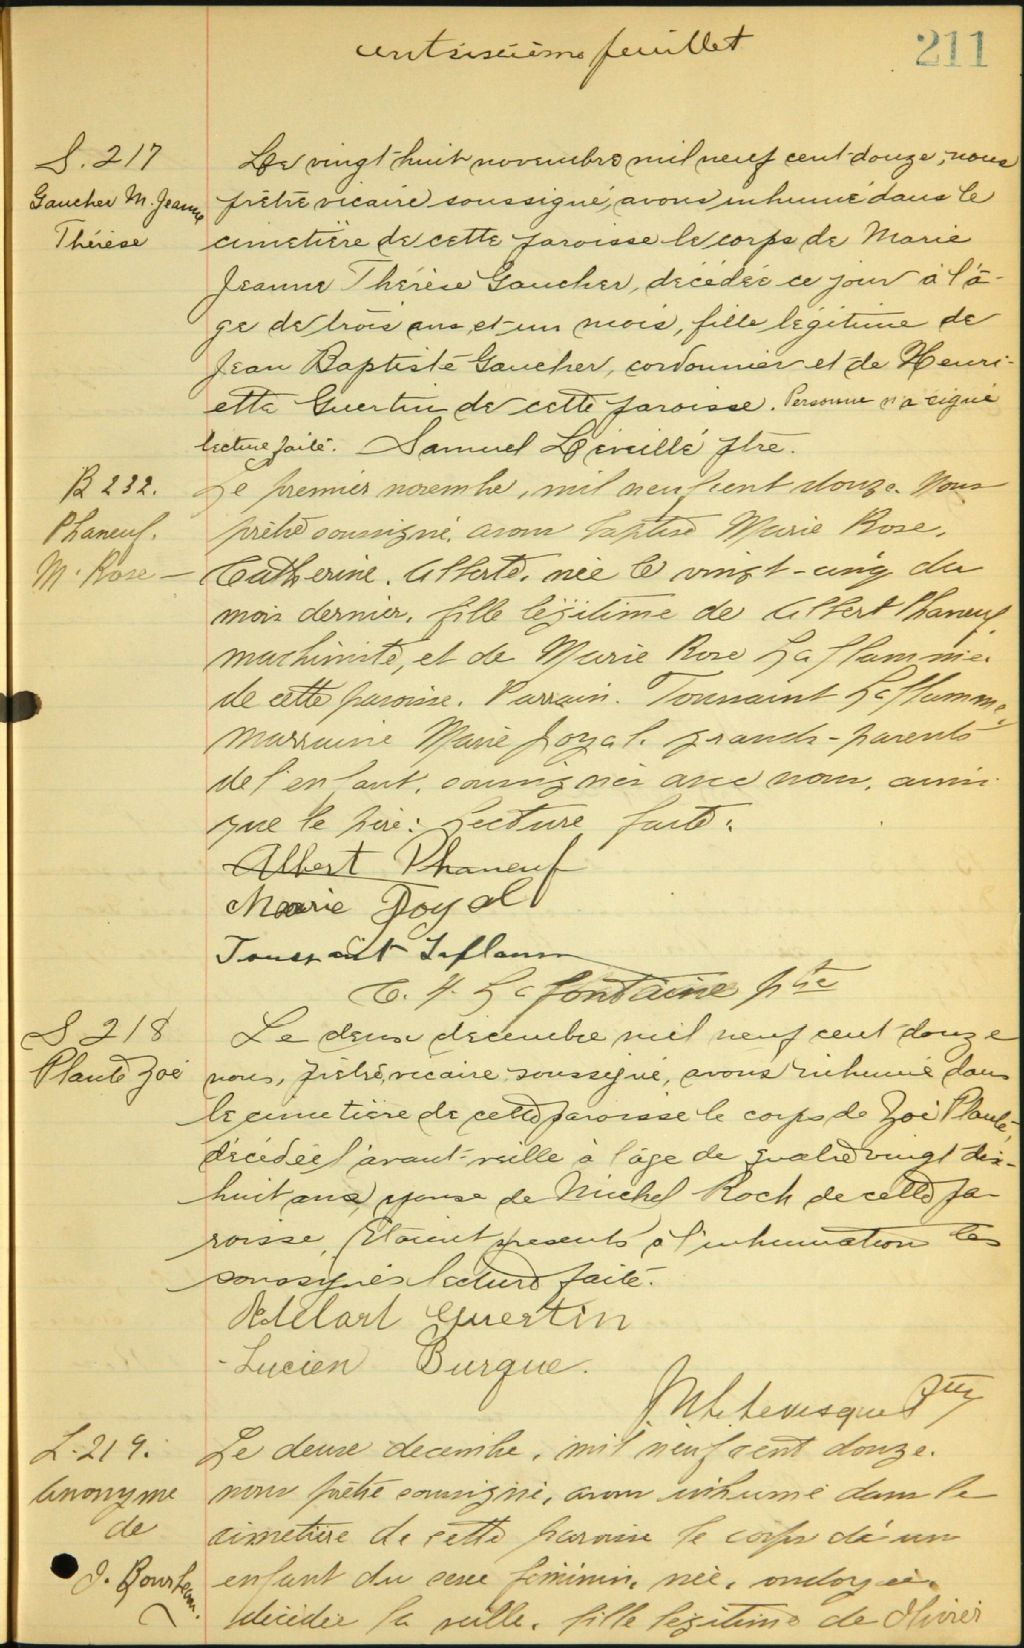 centsixième feuillet
211
S. 217
Gaucher M. Jeanne
Thérèse
Le vingt-huit novembre mil neuf cent douze, nous
prêtre vicaire soussigné, avons inhumé dans le
cimetière de cette paroisse le corps de Marie
Jeanne Thérèse Gaucher, décédée ce jour à l'â-
ge de trois ans et un mois, fille légitime de
Jean Baptiste Gaucher, cordonnier et de Henri-
etta Guertin de cette paroisse. Personne n'a signé
lecture faite. Samuel Léveillé ptre.
B 232.
Phaneuf.
M. Rose —
Le premier novembre, mil neuf cent douze. Nous
prêtre soussigné, avons baptisé Marie Rose,
Catherine, Alberte, née le vingt-cinq du
mois dernier, fille légitime de Albert Phaneuf
machiniste, et de Marie Rose Laflamme.
de cette paroisse. Parrain. Toussaint Laflamme,
marraine Marie Joyal. grands-parents
de l'enfant, soussignés avec nous, ainsi
que le père: Lecture faite:
Albert Phaneuf
Marie Joyal
Toussaint Laflamm
Lafontaine ptre
S 218
Plante Zoé
Le deux décembre mil neuf cent douze
nous, prêtre, vicaire soussigné, avons inhumé dans
le cimetière de cette paroisse le corps de Zoé Plante,
décédée l'avant-veille à l'âge de quatre vingt dix-
huit ans, épouse de Michel Roch de cette pa-
roisse. Etaient présents à l'inhumation les
soussignés lecture faite.
Adélart Guertin
Lucien Burque.
Levesque ptre
S. 219.
Anonyme
de
O. Bourbeau.
Le deux decembre, mil neuf cent douze.
nous prêtre soussigné, avons inhumé dans le
cimetière de cette paroisse le corps de un
enfant du sexe féminin, née, ondoyée,
décédée la veille, fille légitime de Olivier